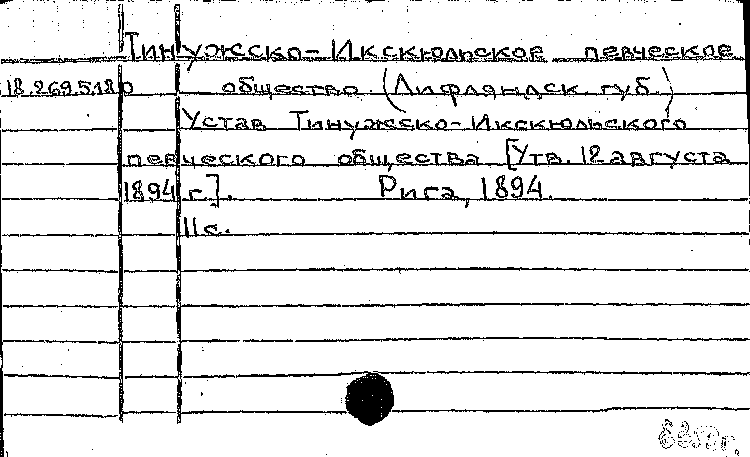 Тинужсско-Икскюльское певческое
18.269.518о общество (Лифляндск. губ.)
Устав Тинужсско-Икскюльского
певческого общества. [Утв. 12 августа
1894 г.]. Рига, 1894.
11 с.